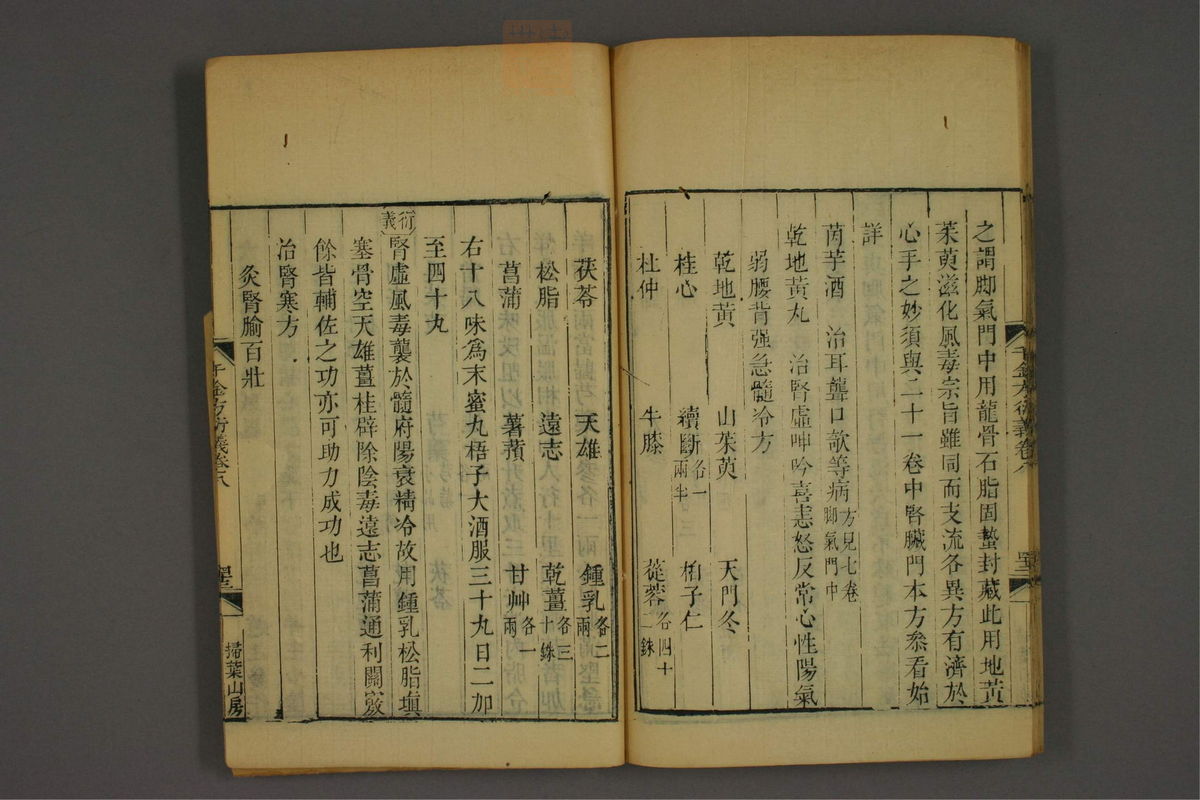 之謂脚氣門中用龍骨石脂固蟄封藏此用地黃
茱萸滋化風毒宗旨雖同而支流各異方有濟於
心手之妙須與二十一卷中腎臟門本方叅看始
詳
茵芋酒 治耳聾口欹等病方見七卷脚氣門中
乾地黃丸 治腎虛呻吟喜恚怒反常心性陽氣
弱腰背强急髓冷方
乾地黃 山茱萸 天門冬
桂心 續斷各一兩半 柏子仁
杜仲 牛膝 蓯蓉各四十二銖
茯苓 天雄 鍾乳各二兩
松脂 遠志 乾薑各三十銖
菖蒲 薯蕷 甘艸各一兩
右十八味爲末蜜丸梧子大酒服三十丸日二加
至四十丸
衍義 腎虛風毒襲於髓府陽衰精冷故用鍾乳松脂塡
塞骨空天雄薑桂辟除陰毒遠志菖蒲通利關竅
餘皆輔佐之功亦可助力成功也
治腎寒方
灸腎腧百壯
千金方衍義卷八
掃葉山房